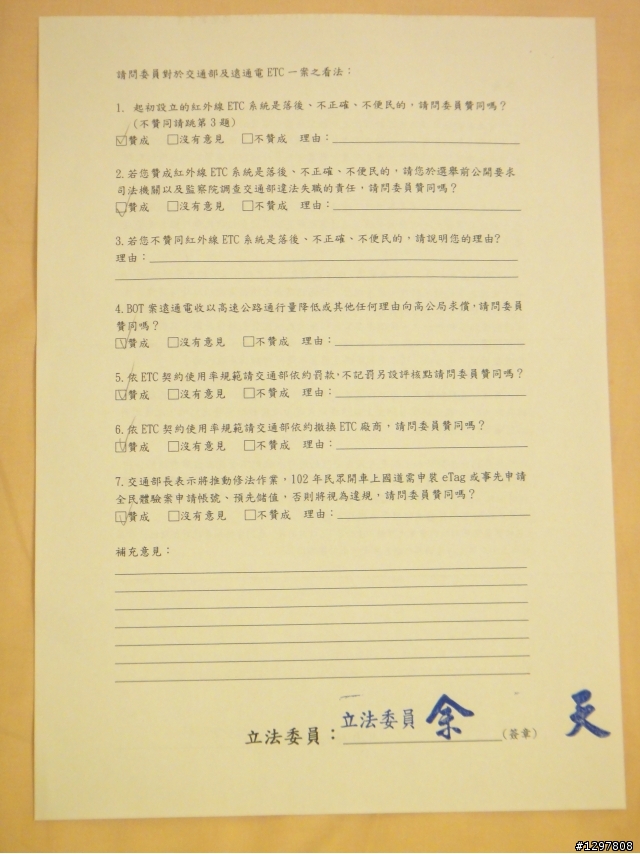 請問委員對於交通部及遠通電 ETC 一案之看法：
1. 起初設立的紅外線 ETC 系統是落後、不正確、不便民的，請問委員贊同嗎？
(不贊同請跳第 3 題)
☑贊成 □沒有意見 □不贊成 理由：
2.若您贊成紅外線 ETC 系統是落後、不正確、不便民的，請您於選舉前公開要求
司法機關以及監察院調查交通部違法失職的責任，請問委員贊同嗎？
☑贊成 □沒有意見 □不贊成 理由：
3.若您不贊同紅外線 ETC 系統是落後、不正確、不便民的，請說明您的理由?
理由：
4.BOT 案遠通電收以高速公路通行量降低或其他任何理由向高公局求償，請問委員
贊同嗎？
☑贊成 □沒有意見 □不贊成 理由：
5.依 ETC 契約使用率規範請交通部依約罰款，不記罰另設評核點請問委員贊同嗎？
☑贊成 □沒有意見 □不贊成 理由：
6.依 ETC 契約使用率規範請交通部依約撤換 ETC 廠商，請問委員贊同嗎？
☑贊成 □沒有意見 □不贊成 理由：
7.交通部長表示將推動修法作業，102 年民眾開車上國道需申裝 eTag 或事先申請
全民體驗案申請帳號、預先儲值，否則將視為違規，請問委員贊同嗎？
☑贊成 □沒有意見 □不贊成 理由：
補充意見：
立法委員：立法委員 余 天 (簽章)
#1297808